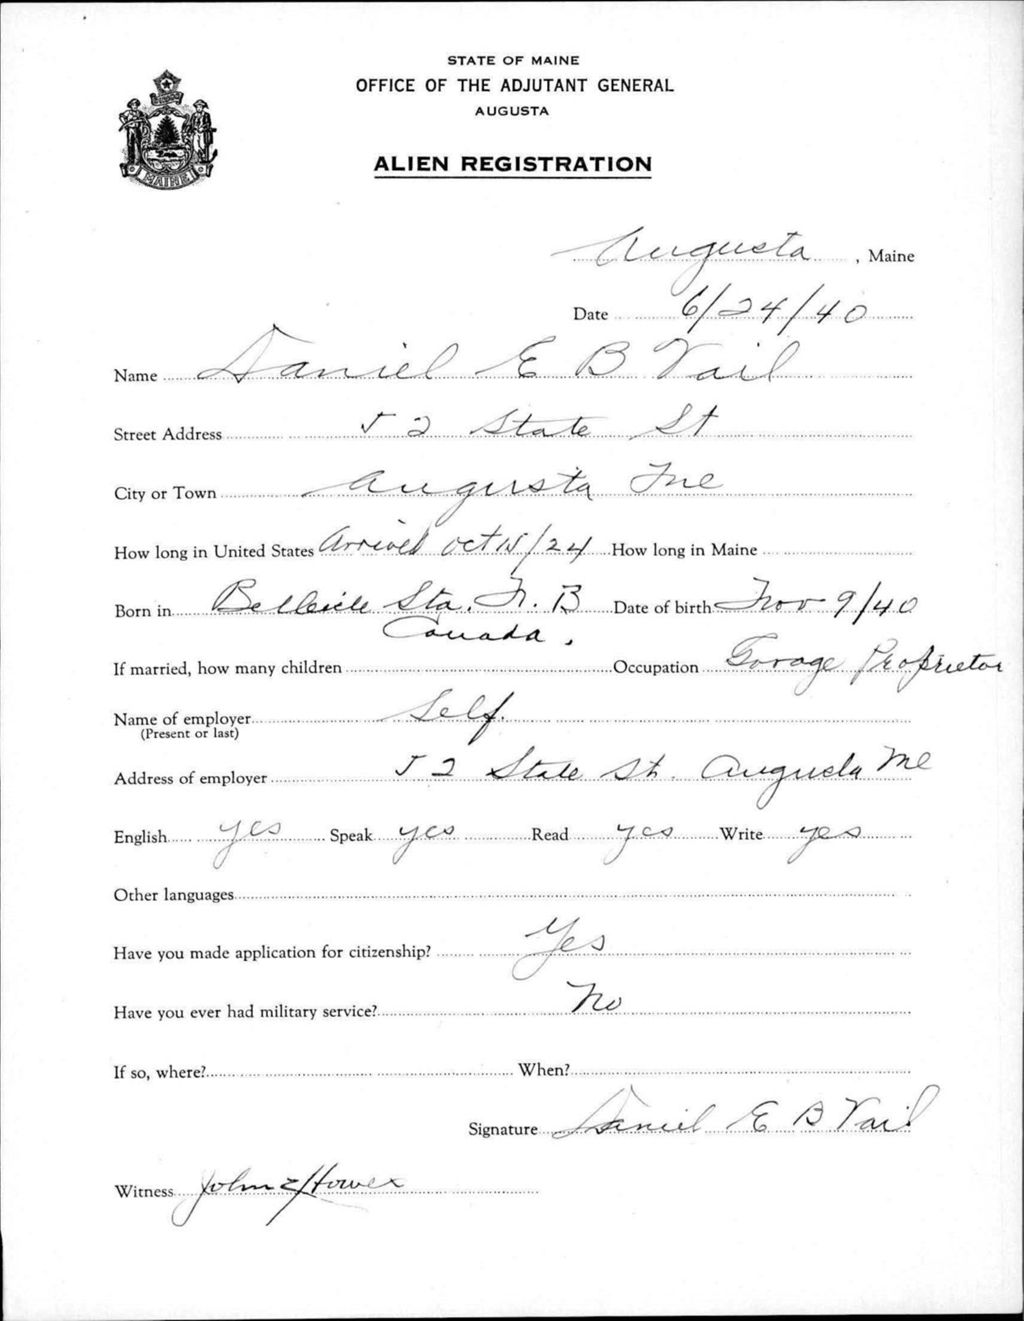 STATE OF MAINE
OFFICE OF THE ADJUTANT GENERAL
AUGUSTA
ALIEN REGISTRATION
MAINE
Augusta, Maine
Date 6/24/40
Name Daniel E B Vail
Street Address 52 State St
City or Town Augusta Me
How long in United States Arrived Oct 15/24 How long in Maine
Born in Belleisle Sta. N. B Date of birth Nov 9/40
Canada.
If married, how many children Occupation Garage Proprietor
Name of employer Self.
(Present or last)
Address of employer 52 State St. Augusta Me
English yes Speak yes Read yes Write yes
Other languages
Have you made application for citizenship? Yes
Have you ever had military service? No
If so, where? When?
Signature Daniel E B Vail
Witness John E Howe